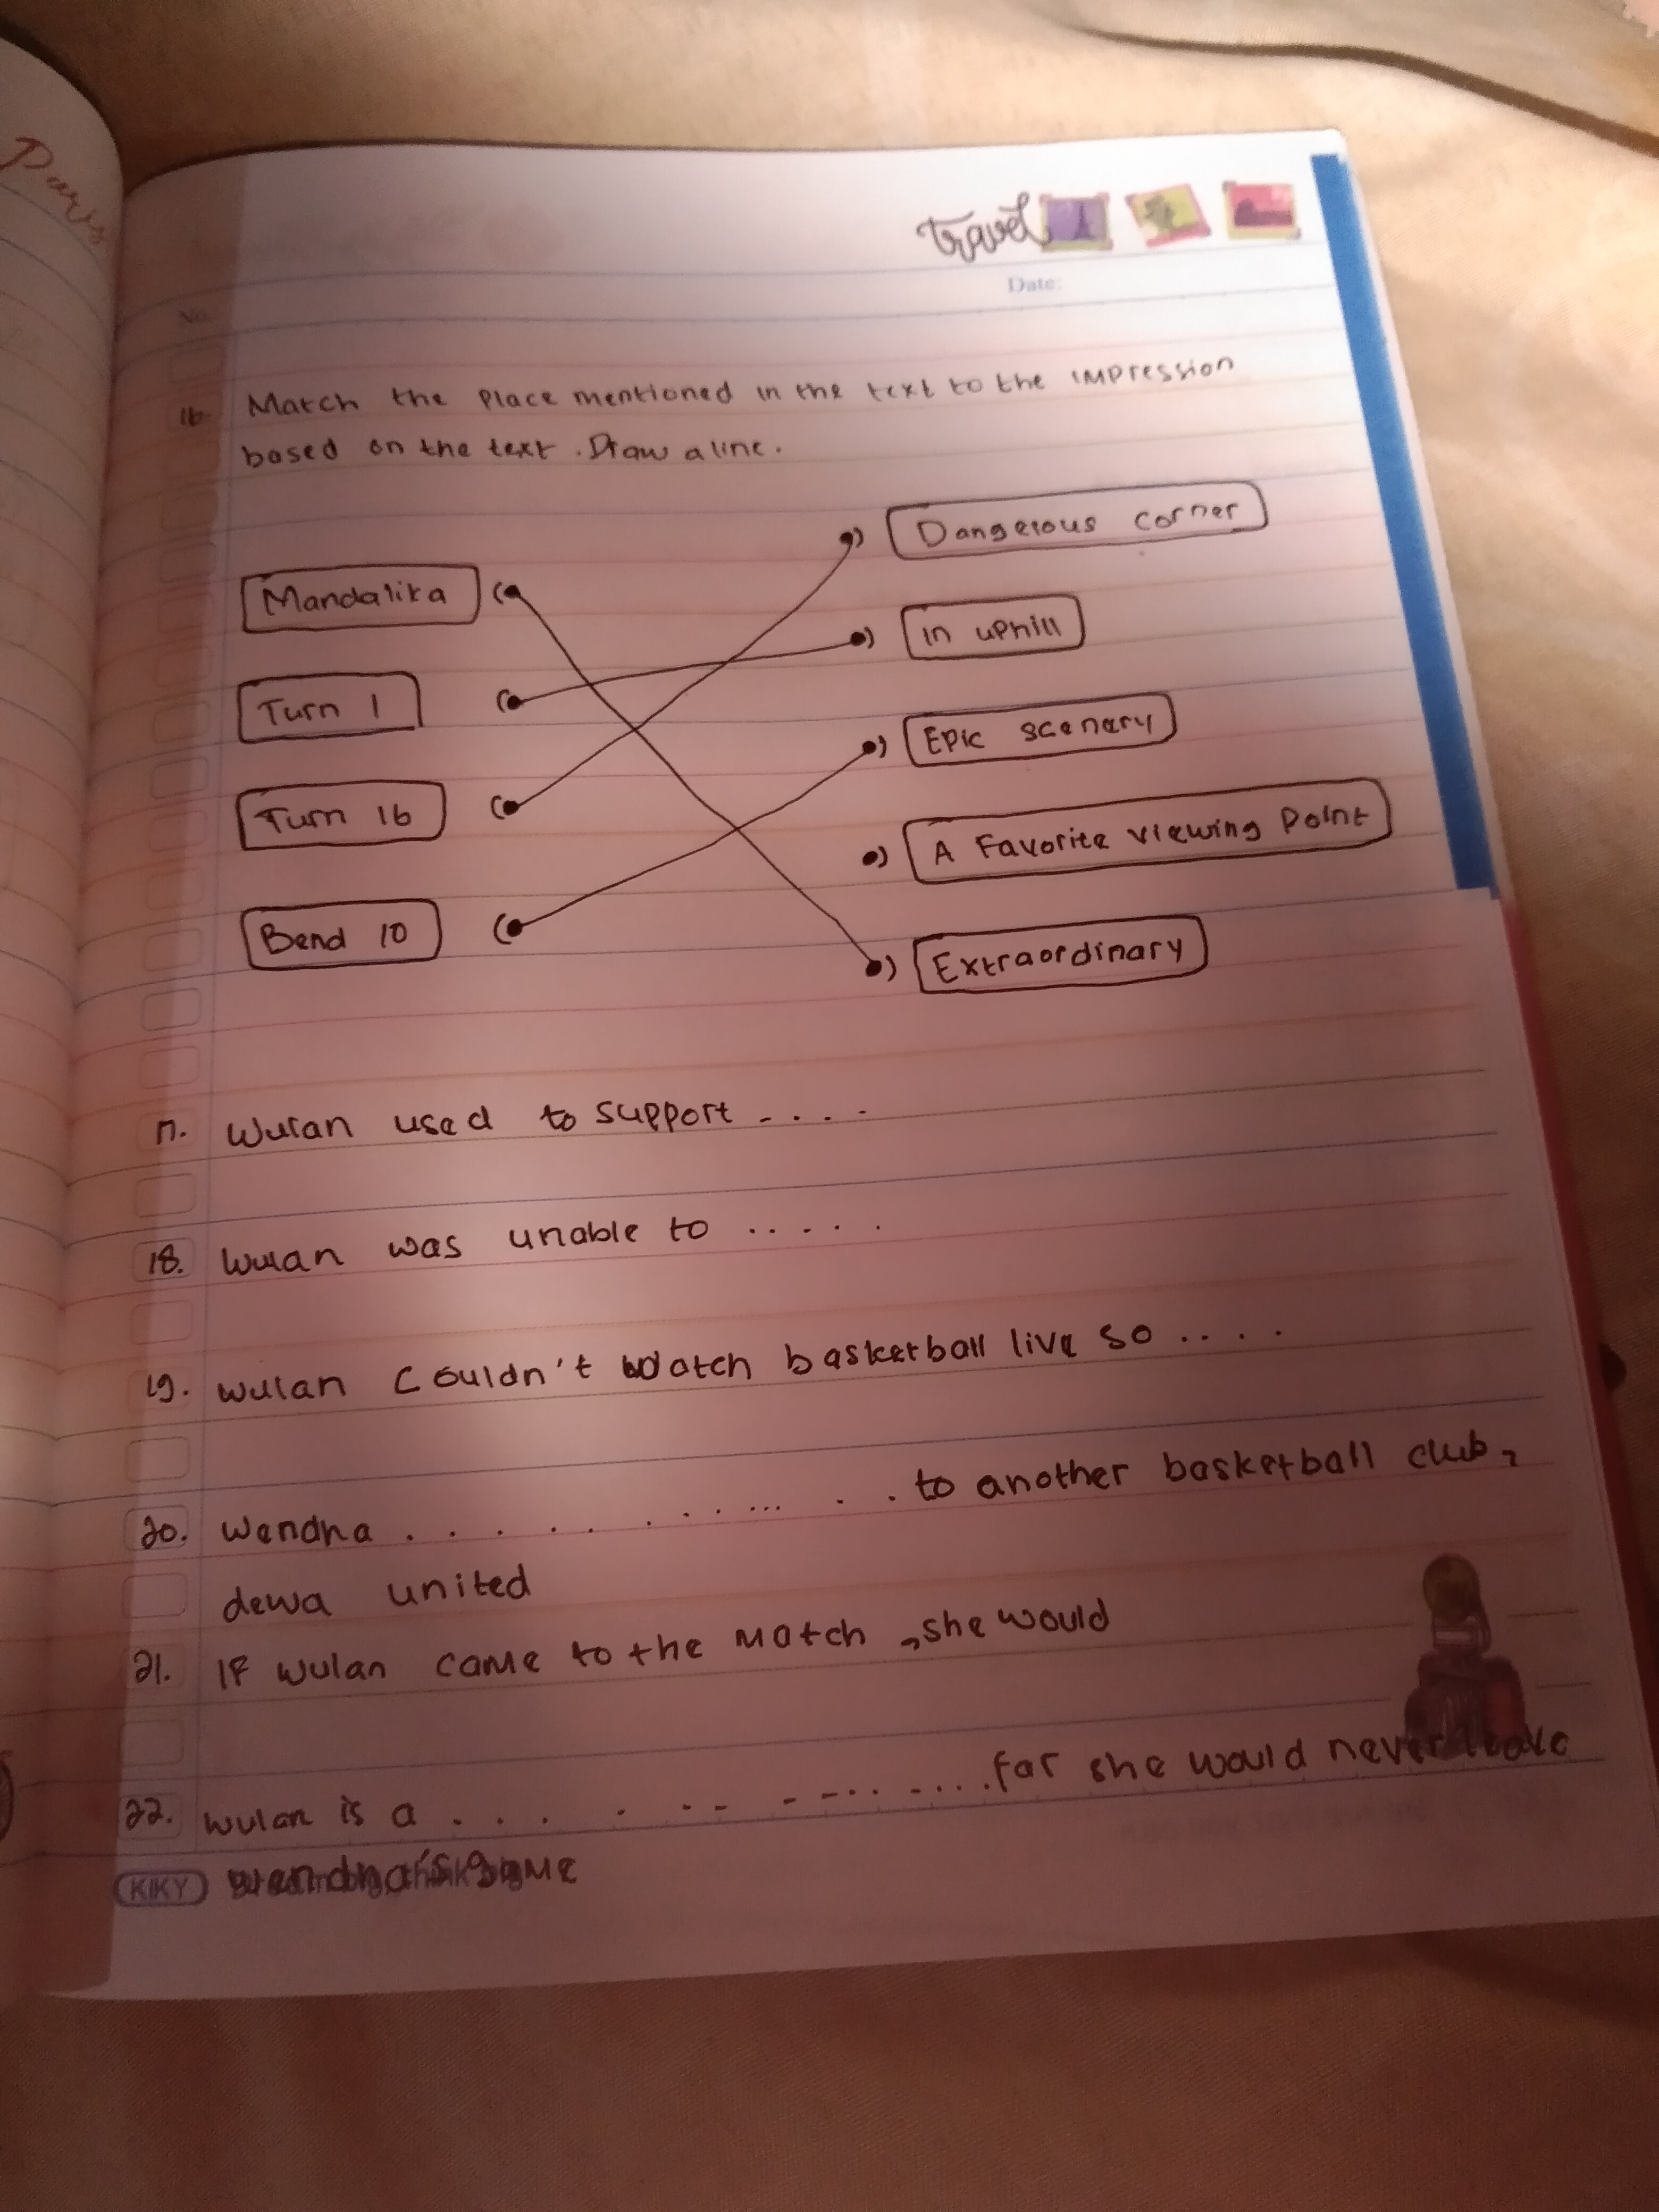 Paris
travel
Date:
No.
16. Match the place mentioned in the text to the impression
based on the text. Draw a line.
Dangerous corner
Mandalika
In uphill
Turn 1
Epic scenary
Turn 16
A Favorite viewing point
Bend 10
Extraordinary
17. Wulan used to support ....
18. Wulan was unable to .....
19. Wulan couldn't watch basketball live so ....
20. Wendha ............ to another basketball club,
dewa united
21. IF wulan came to the match, she would
22. Wulan is a .............. far she would never leave
KIKY wendha's game